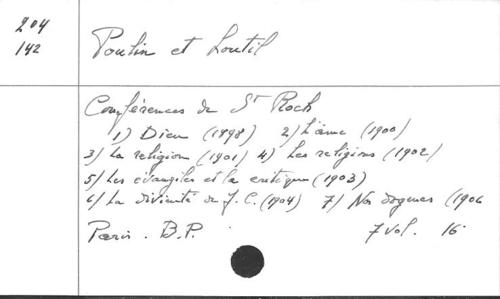 204
142
Poulin et Loutil
Conférences de St Roch
1) Dieu (1898) 2) L'âme (1900)
3) La religion (1901) 4) Les religions (1902)
5) Les évangiles et la critique (1903)
6) La divinité de J.C. (1904) 7) Nos dogmes (1906
Paris. B.P. 7 vol. 16